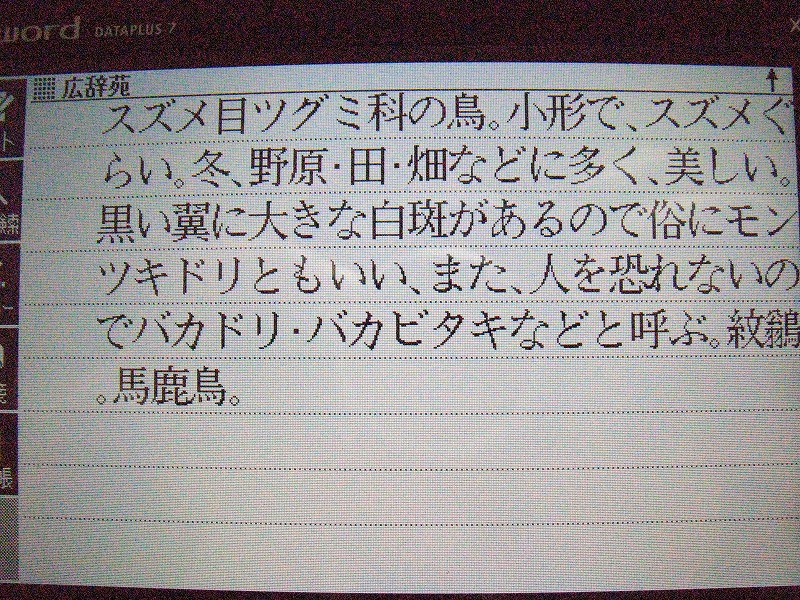 word DATAPLUS 7
広辞苑
スズメ目ツグミ科の鳥。小形で、スズメぐ
らい。冬、野原・田・畑などに多く、美しい。
黒い翼に大きな白斑があるので俗にモン
ツキドリともいい、また、人を恐れないの
でバカドリ・バカビタキなどと呼ぶ。紋鶲
。馬鹿鳥。
ト
帳